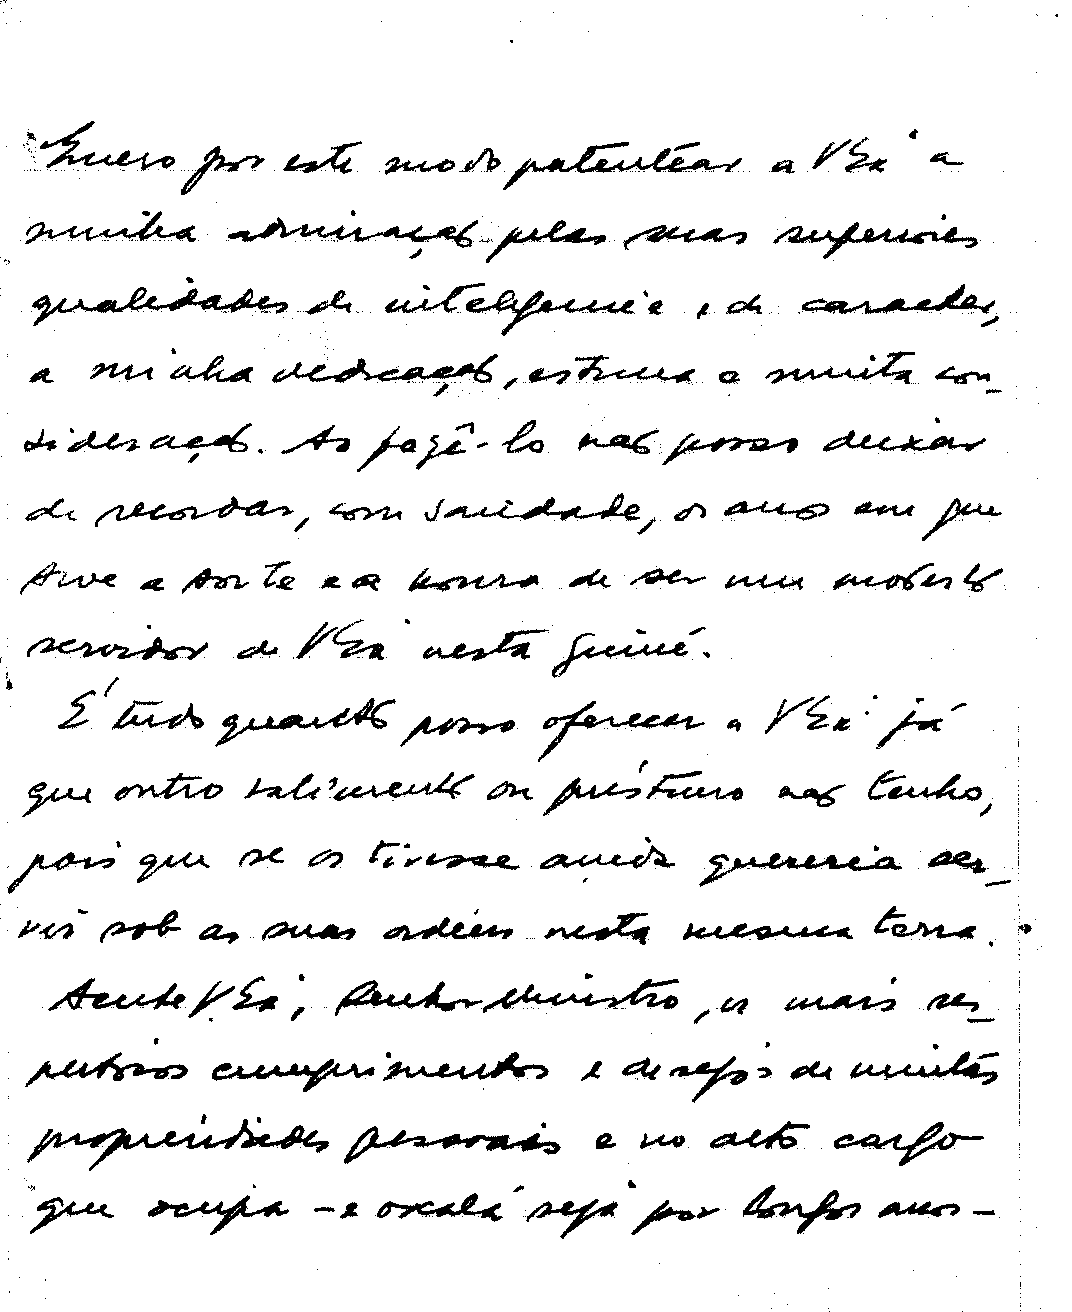 Quero por este modo patentear a V Exª a
minha admiração pelas suas superiores
qualidades de inteligencia e de caracter,
a minha dedicação, estima e muita con-
sideração. Ao fazê-lo não posso deixar
de recordar, com saudade, os anos em que
tive a sorte e a honra de ser um modesto
servidor de V Exª nesta Guiné.
É tudo quanto posso oferecer a V Exª já
que outro valimento ou préstimo não tenho,
pois que se os tivesse ainda quereria ser-
vir sob as suas ordens nesta mesma terra.
Aceite V Exª, Senhor Ministro, os mais res-
peitosos cumprimentos e desejos de muitas
prosperidades pessoais e no alto cargo
que ocupa - e oxalá seja por longos anos -